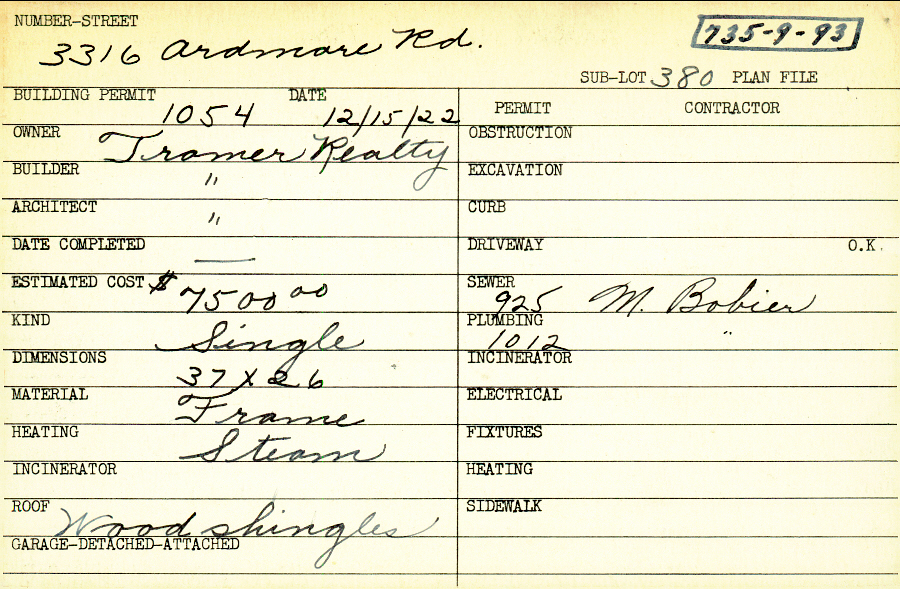 NUMBER-STREET
3316 Ardmore Rd.
735-9-93
SUB-LOT 380 PLAN FILE
BUILDING PERMIT 1054 DATE 12/15/22
PERMIT CONTRACTOR
OWNER Tramer Realty
OBSTRUCTION
BUILDER "
EXCAVATION
ARCHITECT "
CURB
DATE COMPLETED —
DRIVEWAY O.K.
ESTIMATED COST $ 7500 00
SEWER 925 M. Bobier
KIND Single
PLUMBING 1012 "
DIMENSIONS 37 x 26
INCINERATOR
MATERIAL Frame
ELECTRICAL
HEATING Steam
FIXTURES
INCINERATOR
HEATING
ROOF Wood shingles
SIDEWALK
GARAGE-DETACHED-ATTACHED